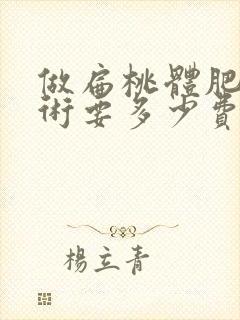 做扁桃體肥
術要多少費
楊立青